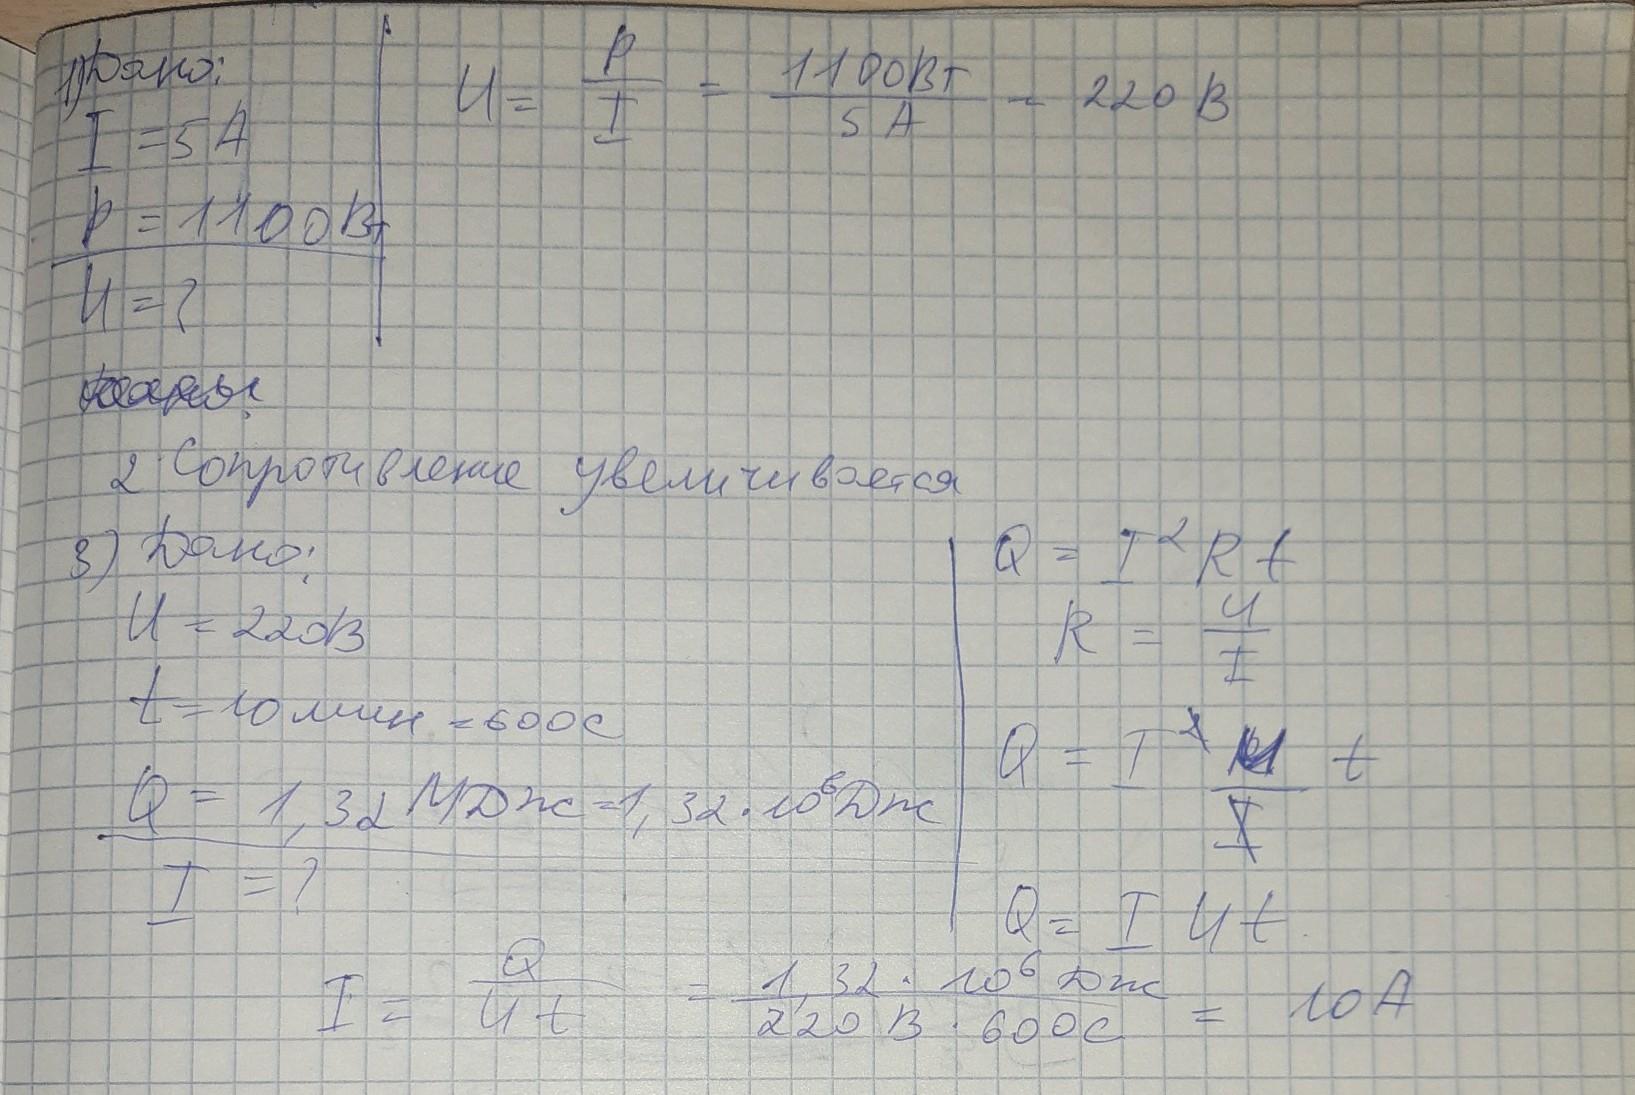 1) Дано:
I = 5 А
P = 1100 Вт
U = ?
U = P/I = 1100Вт/5 А = 220 В
2 Сопротивление увеличивается
3) Дано:
U = 220В
t = 10 мин = 600с
Q = 1,32 МДж = 1,32 · 10⁶ Дж
I = ?
Q = I² R t
R = U/I
Q = I² U/I t
Q = I U t
I = Q/U t = 1,32 · 10⁶ Дж/220 В · 600с = 10 А